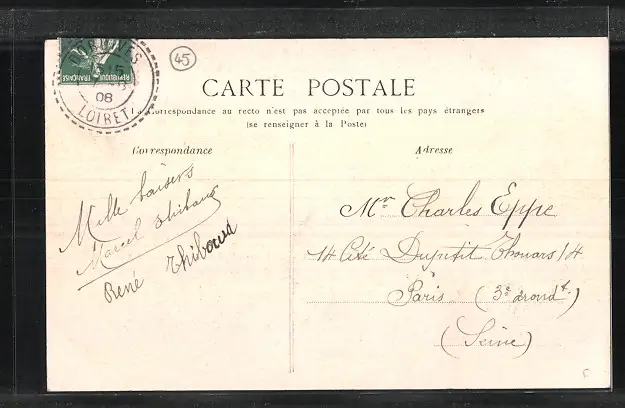 45
RÉPUBLIQUE FRANÇAISE
15
08
LOIRET
CARTE POSTALE
La Correspondance au recto n'est pas acceptée par tous les pays étrangers
(se renseigner à la Poste)
Correspondance
Mille baisers
Marcel Thibaud
René Thibaud
Adresse
Mr Charles Eppe
14 Cité Dupetit Thouars 14
Paris (3e arondt.)
(Seine)